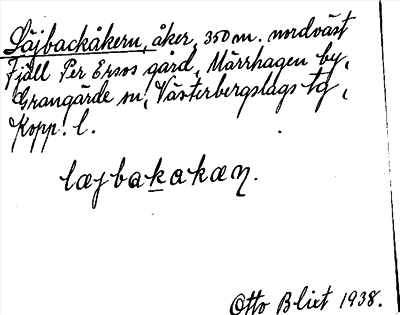 Läjbackåkern, åker, 350 m. nordväst
Fjäll Per Ersos gård, Märrhagen by,
Grangärde sn, Västerbergslags tg,
Kopp. l.
læjbakakæn.
Otto Blixt 1938.